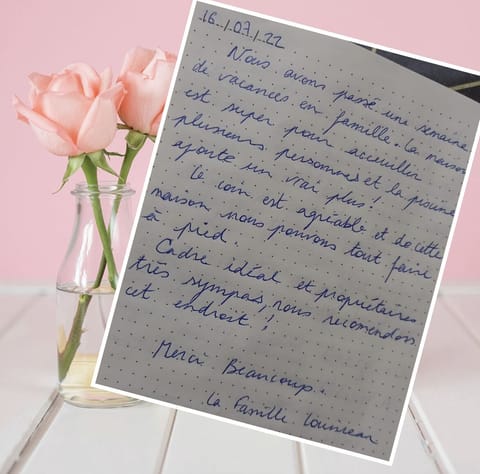 16/07/22
Nous avons passé une semaine
de vacances en famille. La maison
est super pour accueillir
plusieurs personnes et la piscine
ajoute un vrai plus!
Le coin est agréable et de cette
maison nous pouvons tout faire
à pied.
Cadre idéal et propriétaires
très sympas, nous recomendons
cet endroit!
Merci Beaucoup.
La famille